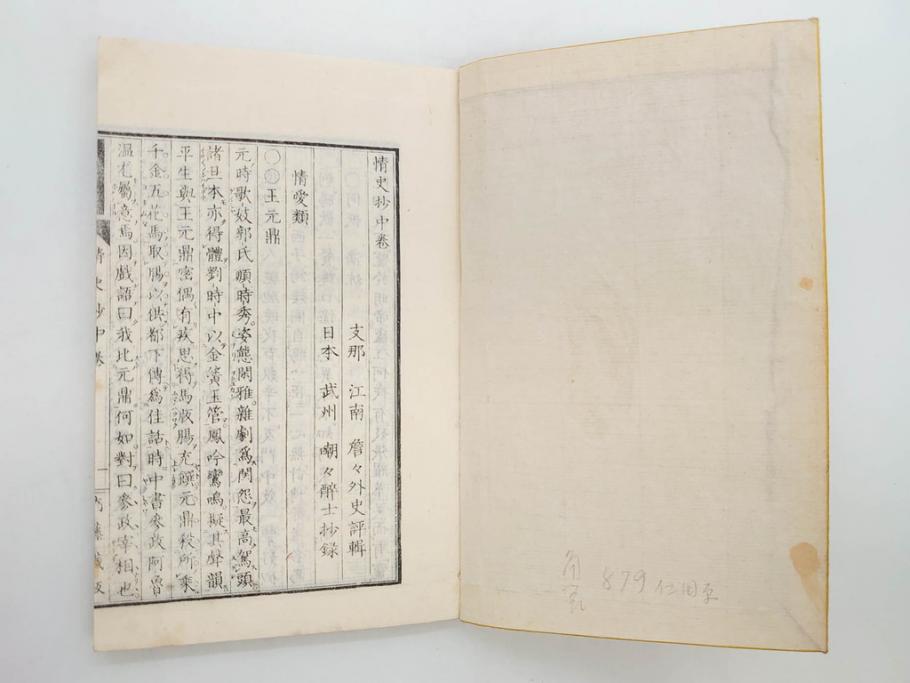 情史抄中卷
支那　江南　詹々外史評輯
日本　武州　嘲々醉士抄録
情愛類
王元鼎
元時歌妓郭氏順時秀姿態閑雅雜劇爲閨怨最高駕頭
諸旦本亦得體劉時中以金簧玉管鳳吟鸞鳴擬其聲韻
平生與王元鼎密偶有疾思得馬版腸充饌元鼎殺所乘
千金五花馬取腸以供都下傳爲佳話時中書參政阿魯
温尤屬意焉因戲語曰我比元鼎何如對曰參政宰相也
情史抄中卷
一
879